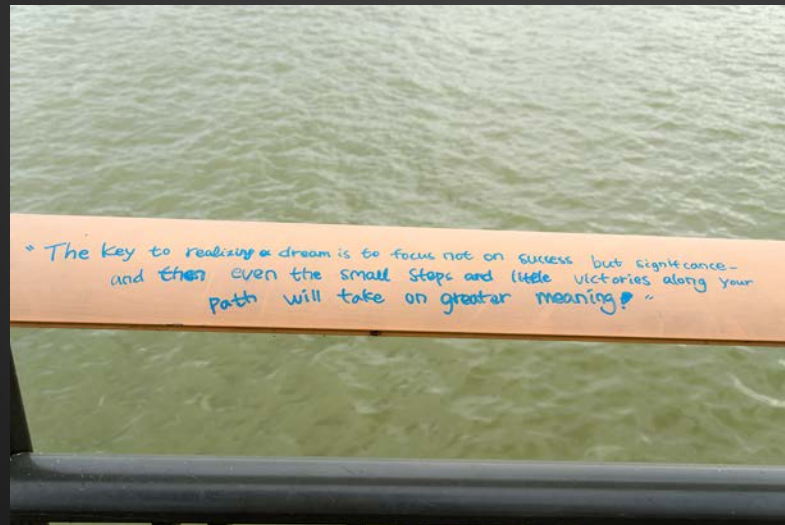 "The key to realizing a dream is to focus not on success but significance-
and then even the small steps and little victories along your
path will take on greater meaning! "